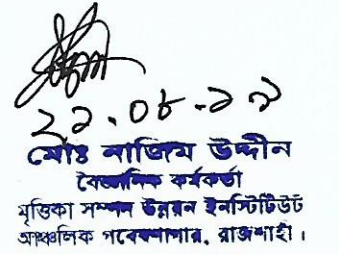 ২১.০৮.১৯
মোঃ নাজিম উদ্দীন
বৈজ্ঞানিক কর্মকর্তা
মৃত্তিকা সম্পদ উন্নয়ন ইনস্টিটিউট
আঞ্চলিক গবেষণাগার, রাজশাহী।